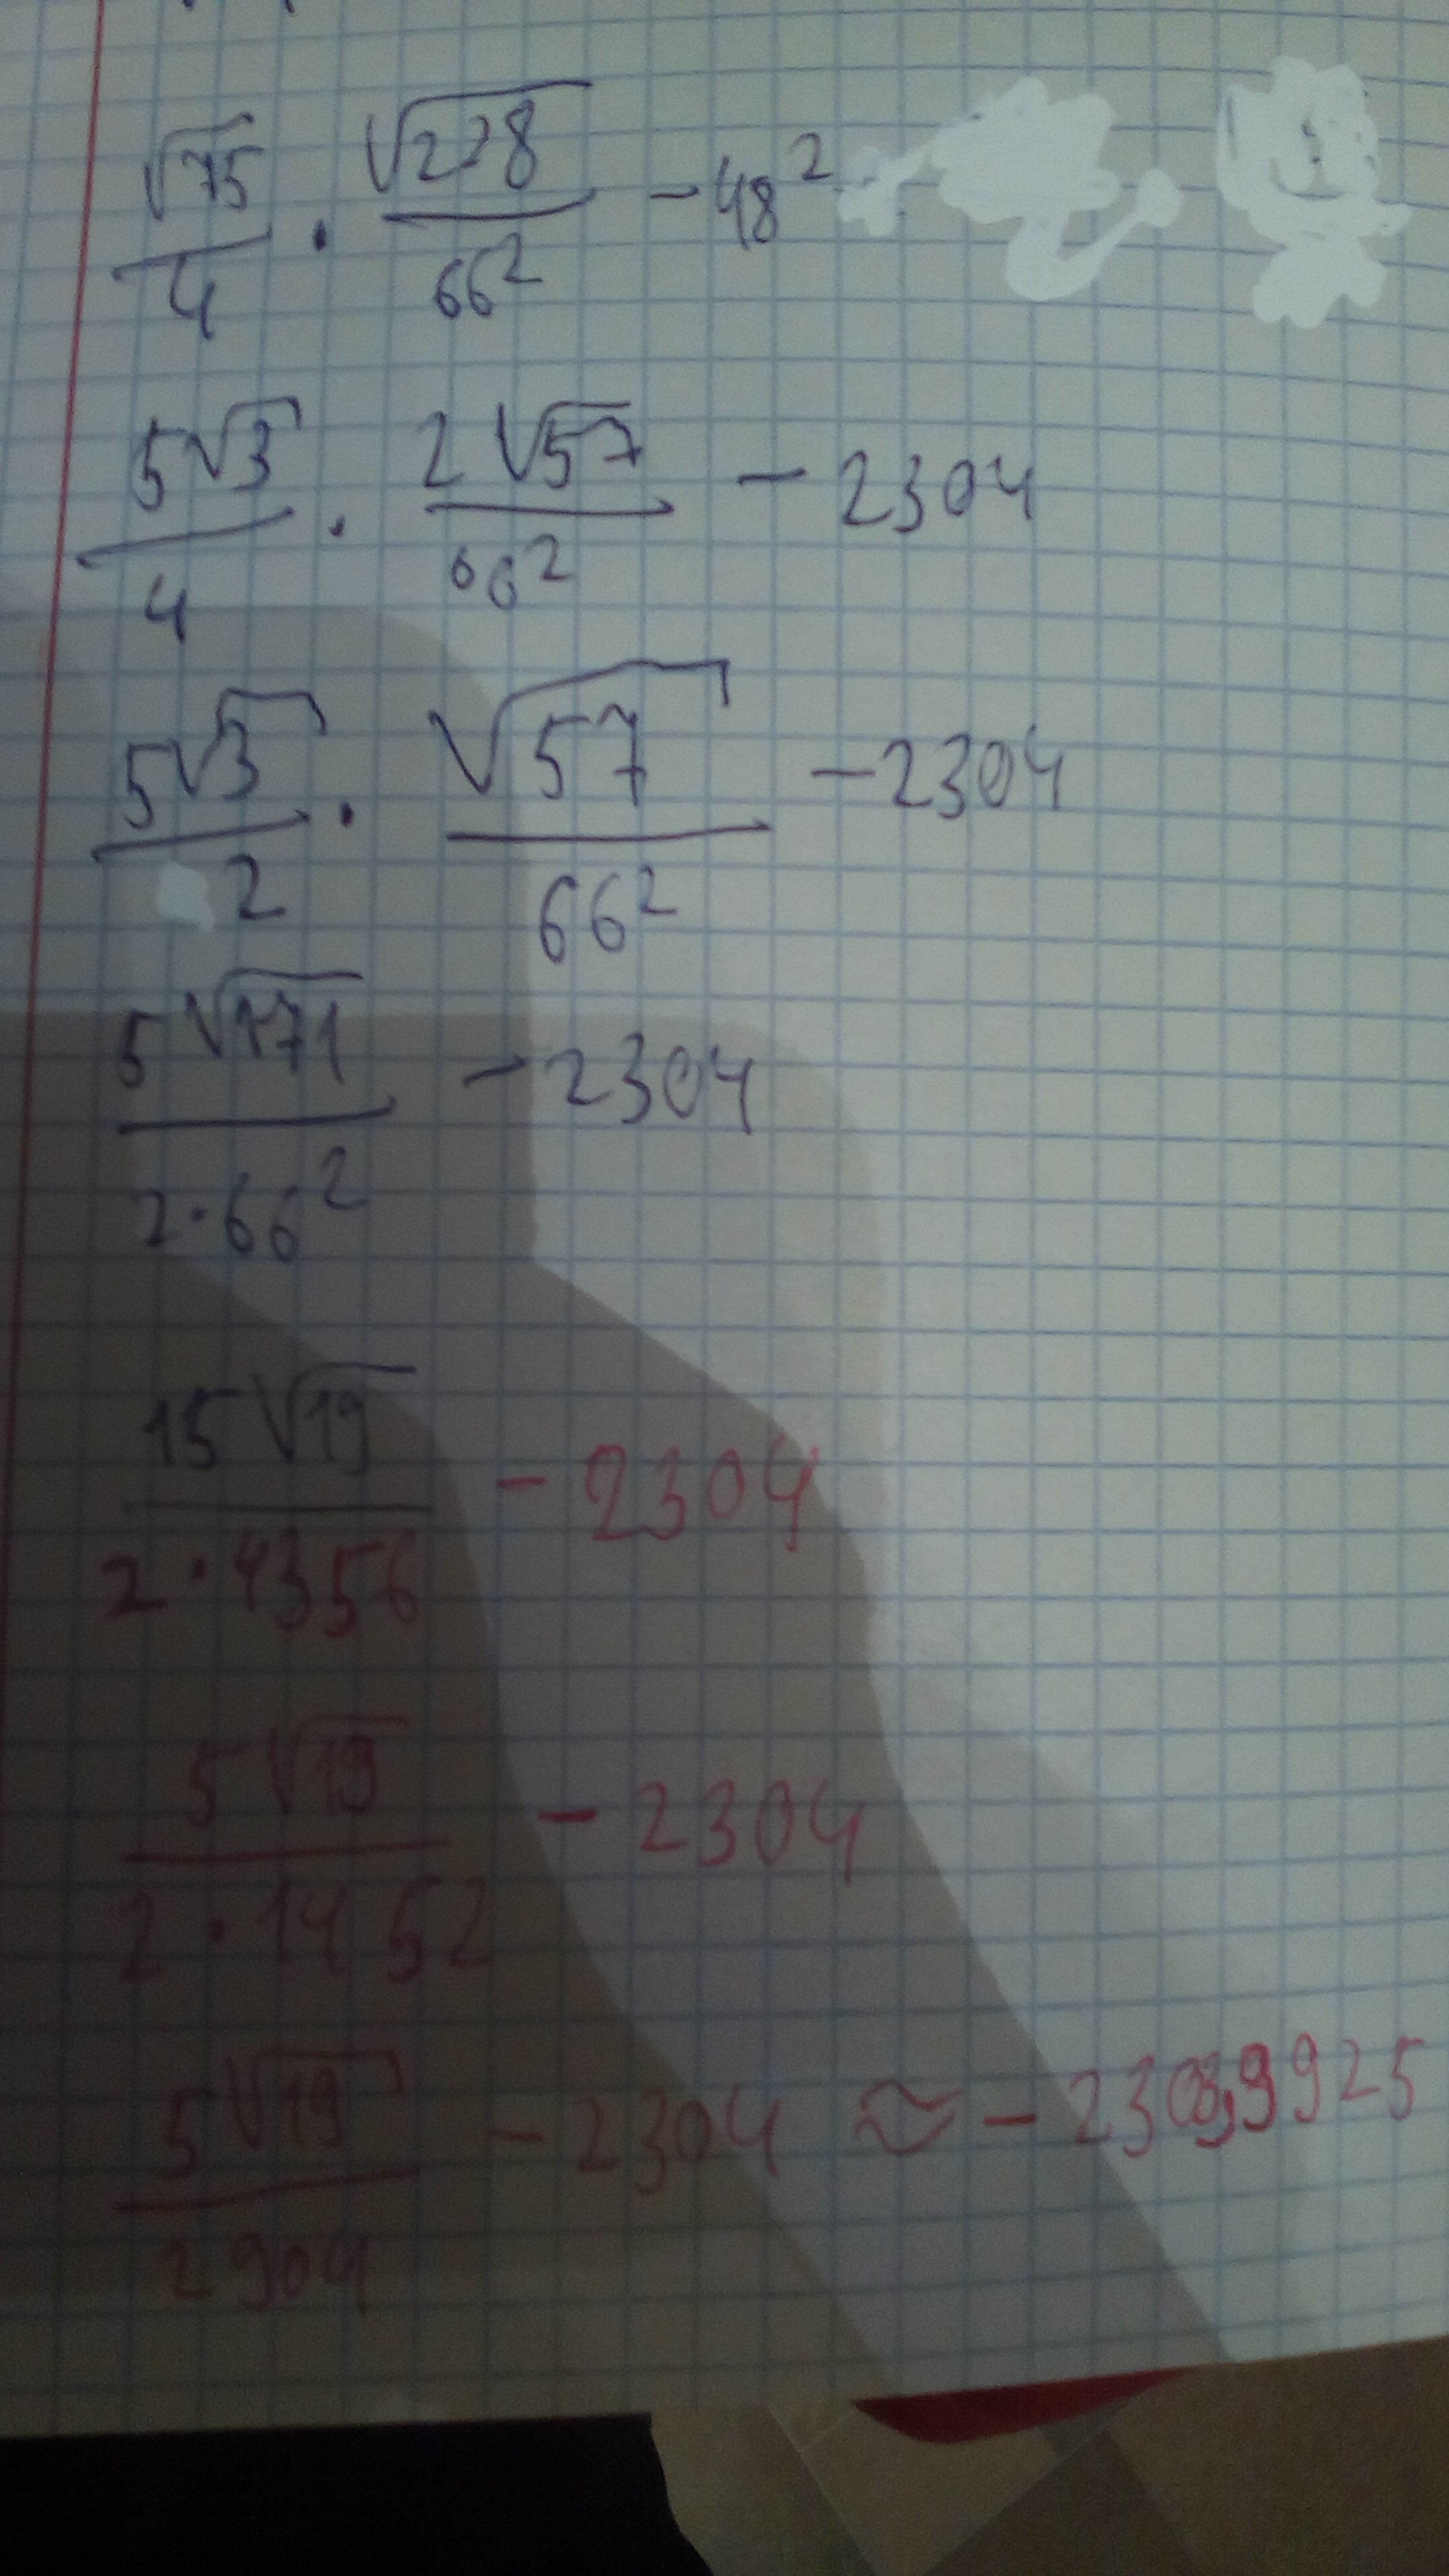 √75/4 · √228/66² - 48²
5√3/4 · 2√57/66² - 2304
5√3/2 · √57/66² - 2304
5√171/2·66² - 2304
15√19/2·4356 - 2304
5√19/2·1452 - 2304
5√19/2904 - 2304 ≈ - 2303,9925